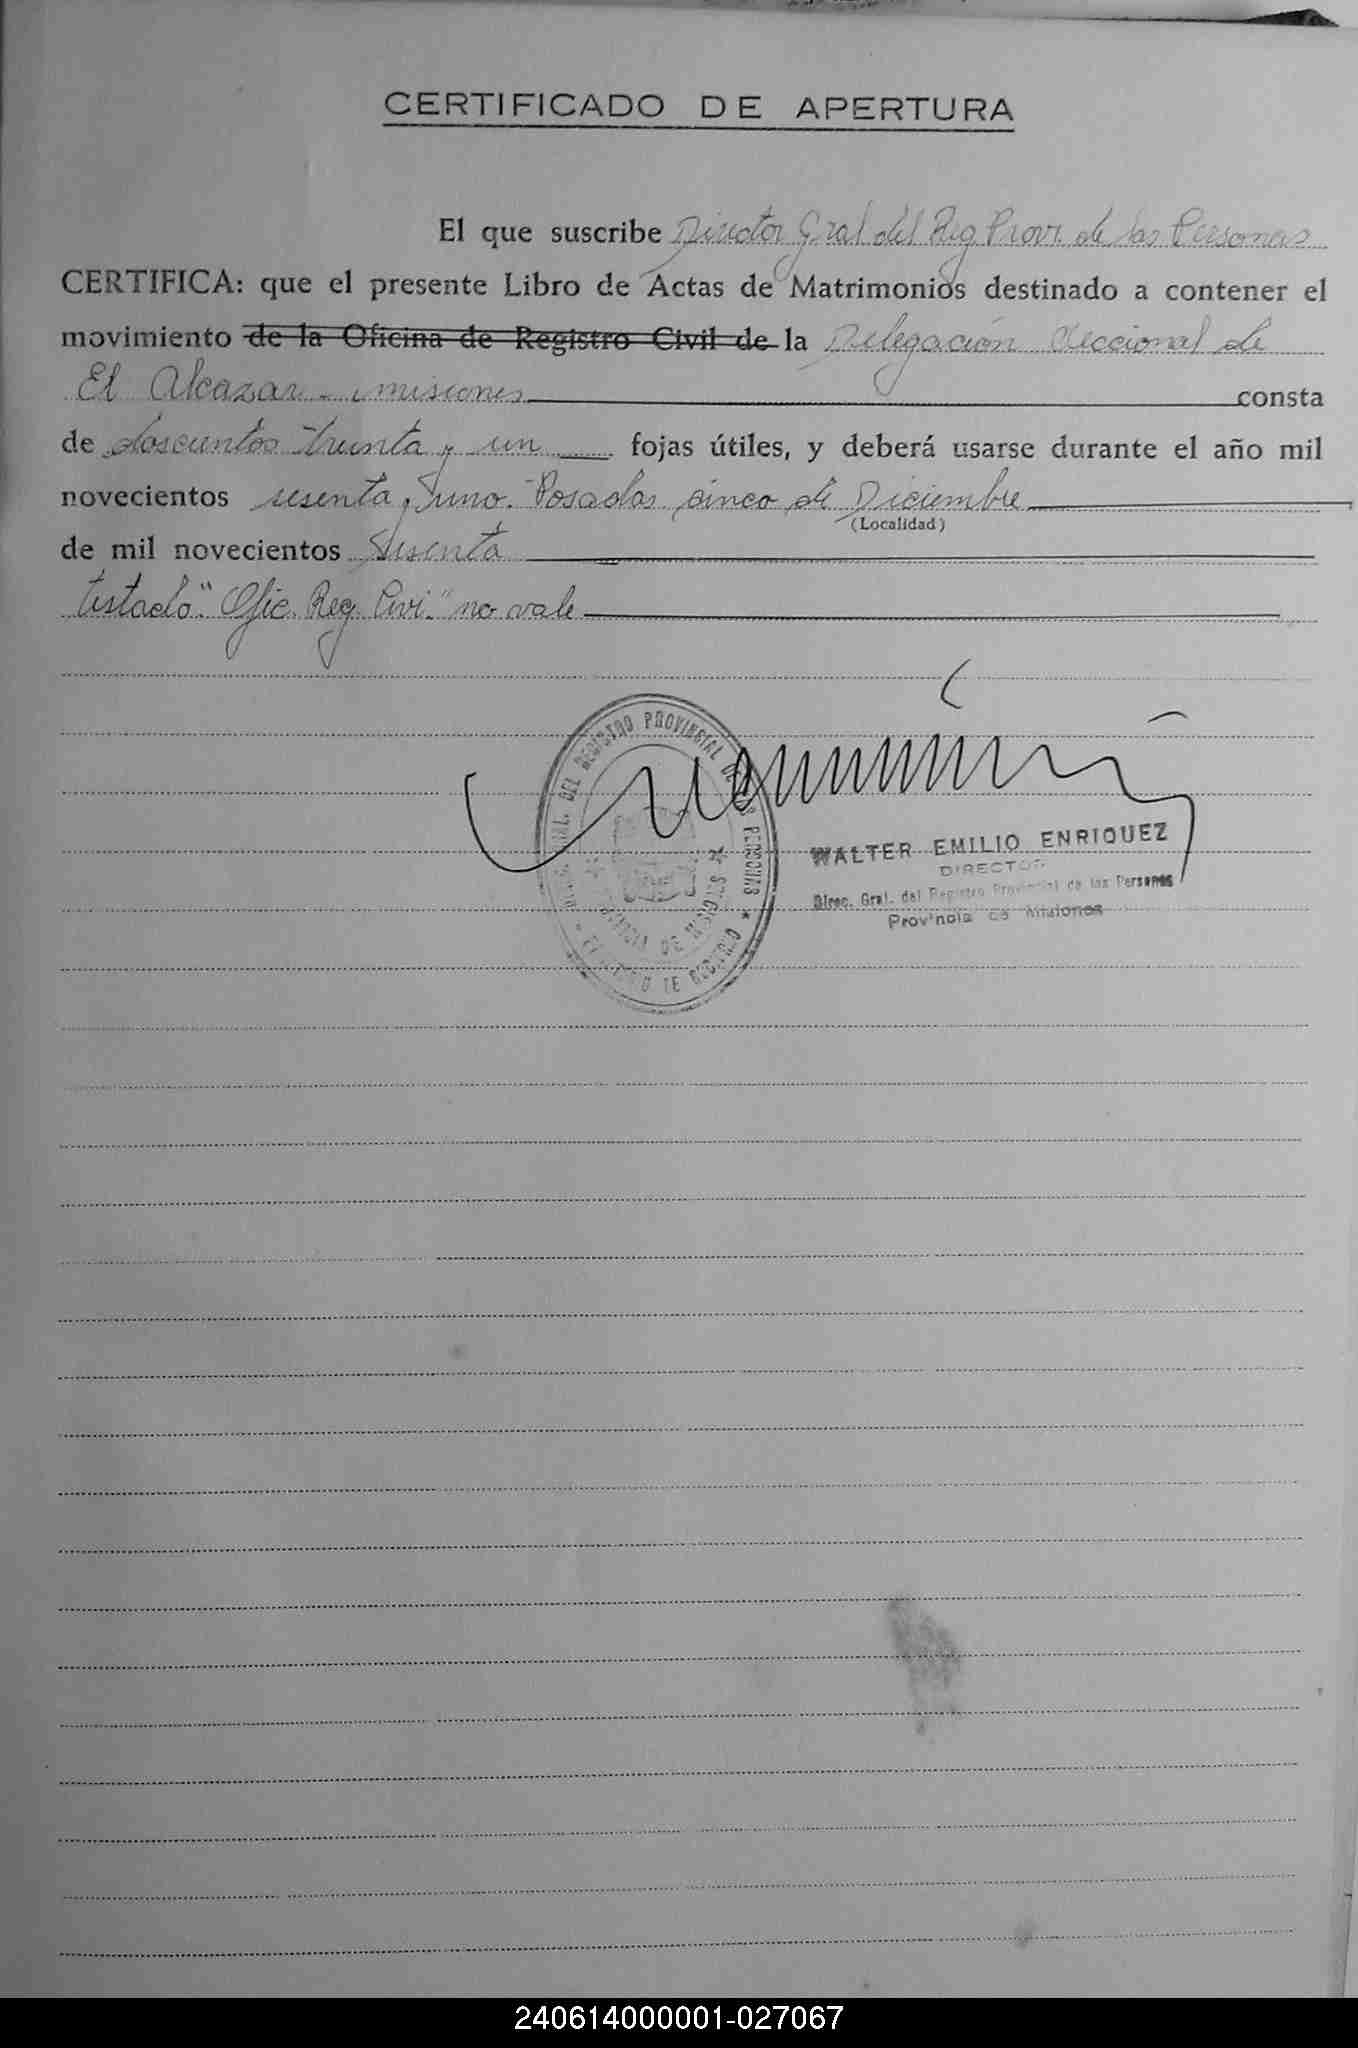 CERTIFICADO DE APERTURA
El que suscribe Director Gral del Reg Provi. de las Personas
CERTIFICA: que el presente Libro de Actas de Matrimonios destinado a contener el
movimiento de la Oficina de Registro Civil de la Delegación Seccional de
El Alcazar - misiones consta
de doscientos treinta y un fojas útiles, y deberá usarse durante el año mil
novecientos sesenta y uno. Posadas cinco de Diciembre
(Localidad)
de mil novecientos Sesenta
testado "Ofic. Reg. Civi." no vale
GRAL. DEL REGISTRO PROVINCIAL DE LAS PERSONAS
PROVINCIA DE MISIONES
MINISTERIO DE GOBIERNO
WALTER EMILIO ENRIQUEZ
DIRECTOR
Direc. Gral. del Registro Provincial de las Personas
Provincia de Misiones
240614000001-027067